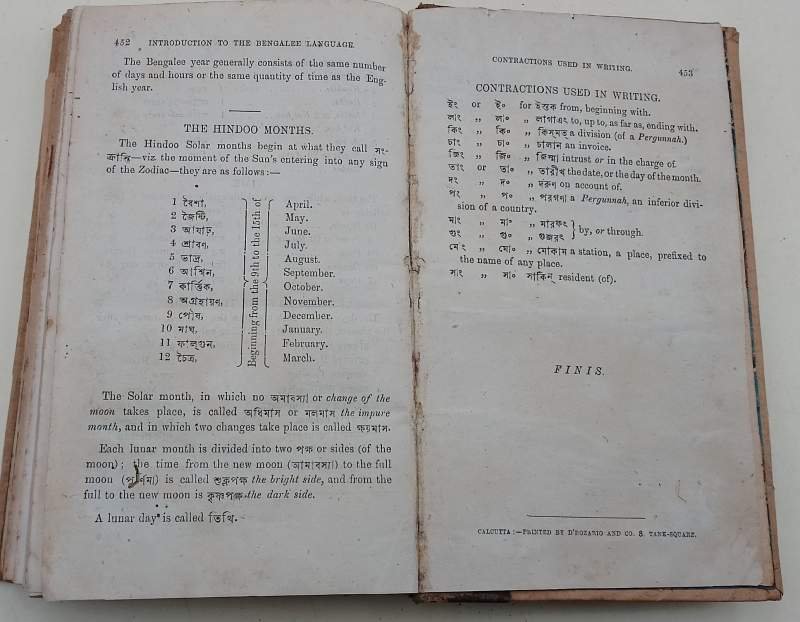 452 INTRODUCTION TO THE BENGALEE LANGUAGE.
The Bengalee year generally consists of the same number
of days and hours or the same quantity of time as the Eng-
lish year.
THE HINDOO MONTHS.
The Hindoo Solar months begin at what they call সং-
ক্রান্তি—viz. the moment of the Sun's entering into any sign
of the Zodiac—they are as follows:—
1 বৈশা, April.
2 জ্যৈষ্ঠি, May.
3 আষাঢ়, June.
4 শ্রাবণ, July.
5 ভাদ্র, August.
6 আশ্বিন, September.
7 কার্ত্তিক, October.
8 অগ্রহায়ণ, November.
9 পৌষ, December.
10 মাঘ, January.
11 ফাল্গুন, February.
12 চৈত্র, March.
Beginning from the 9th to the 15th of
The Solar month, in which no অমাবস্যা or change of the
moon takes place, is called অধিমাস or মলমাস the impure
month, and in which two changes take place is called ক্ষয়মাস.
Each lunar month is divided into two পক্ষ or sides (of the
moon); the time from the new moon (আমাবস্যা) to the full
moon (পূর্ণিমা) is called শুক্লপক্ষ the bright side, and from the
full to the new moon is কৃষ্ণপক্ষ the dark side.
A lunar day is called তিথি.
CONTRACTIONS USED IN WRITING. 453
CONTRACTIONS USED IN WRITING.
ইং or ই° for ইস্তক from, beginning with.
লাং „ লা° „ লাগাএৎ to, up to, as far as, ending with.
কিং „ কি° „ কিস্মত্ a division (of a Pergunnah.)
চাং „ চা° „ চালান an invoice.
জিং „ জি° „ জিম্মা intrust or in the charge of.
তাং or তা° „ তারীখ the date, or the day of the month.
দং „ দ° „ দরুণ on account of.
পং „ প° „ পরগণা a Pergunnah, an inferior divi-
sion of a country.
মাং „ মা° „ মারফৎ
গুং „ গু° „ গুজরৎ } by, or through.
মোং „ মো° „ মোকাম a station, a place, prefixed to
the name of any place.
সাং „ সা° সাকিন্ resident (of).
FINIS.
CALCUTTA:—PRINTED BY D'ROZARIO AND CO. 8. TANK-SQUARE.